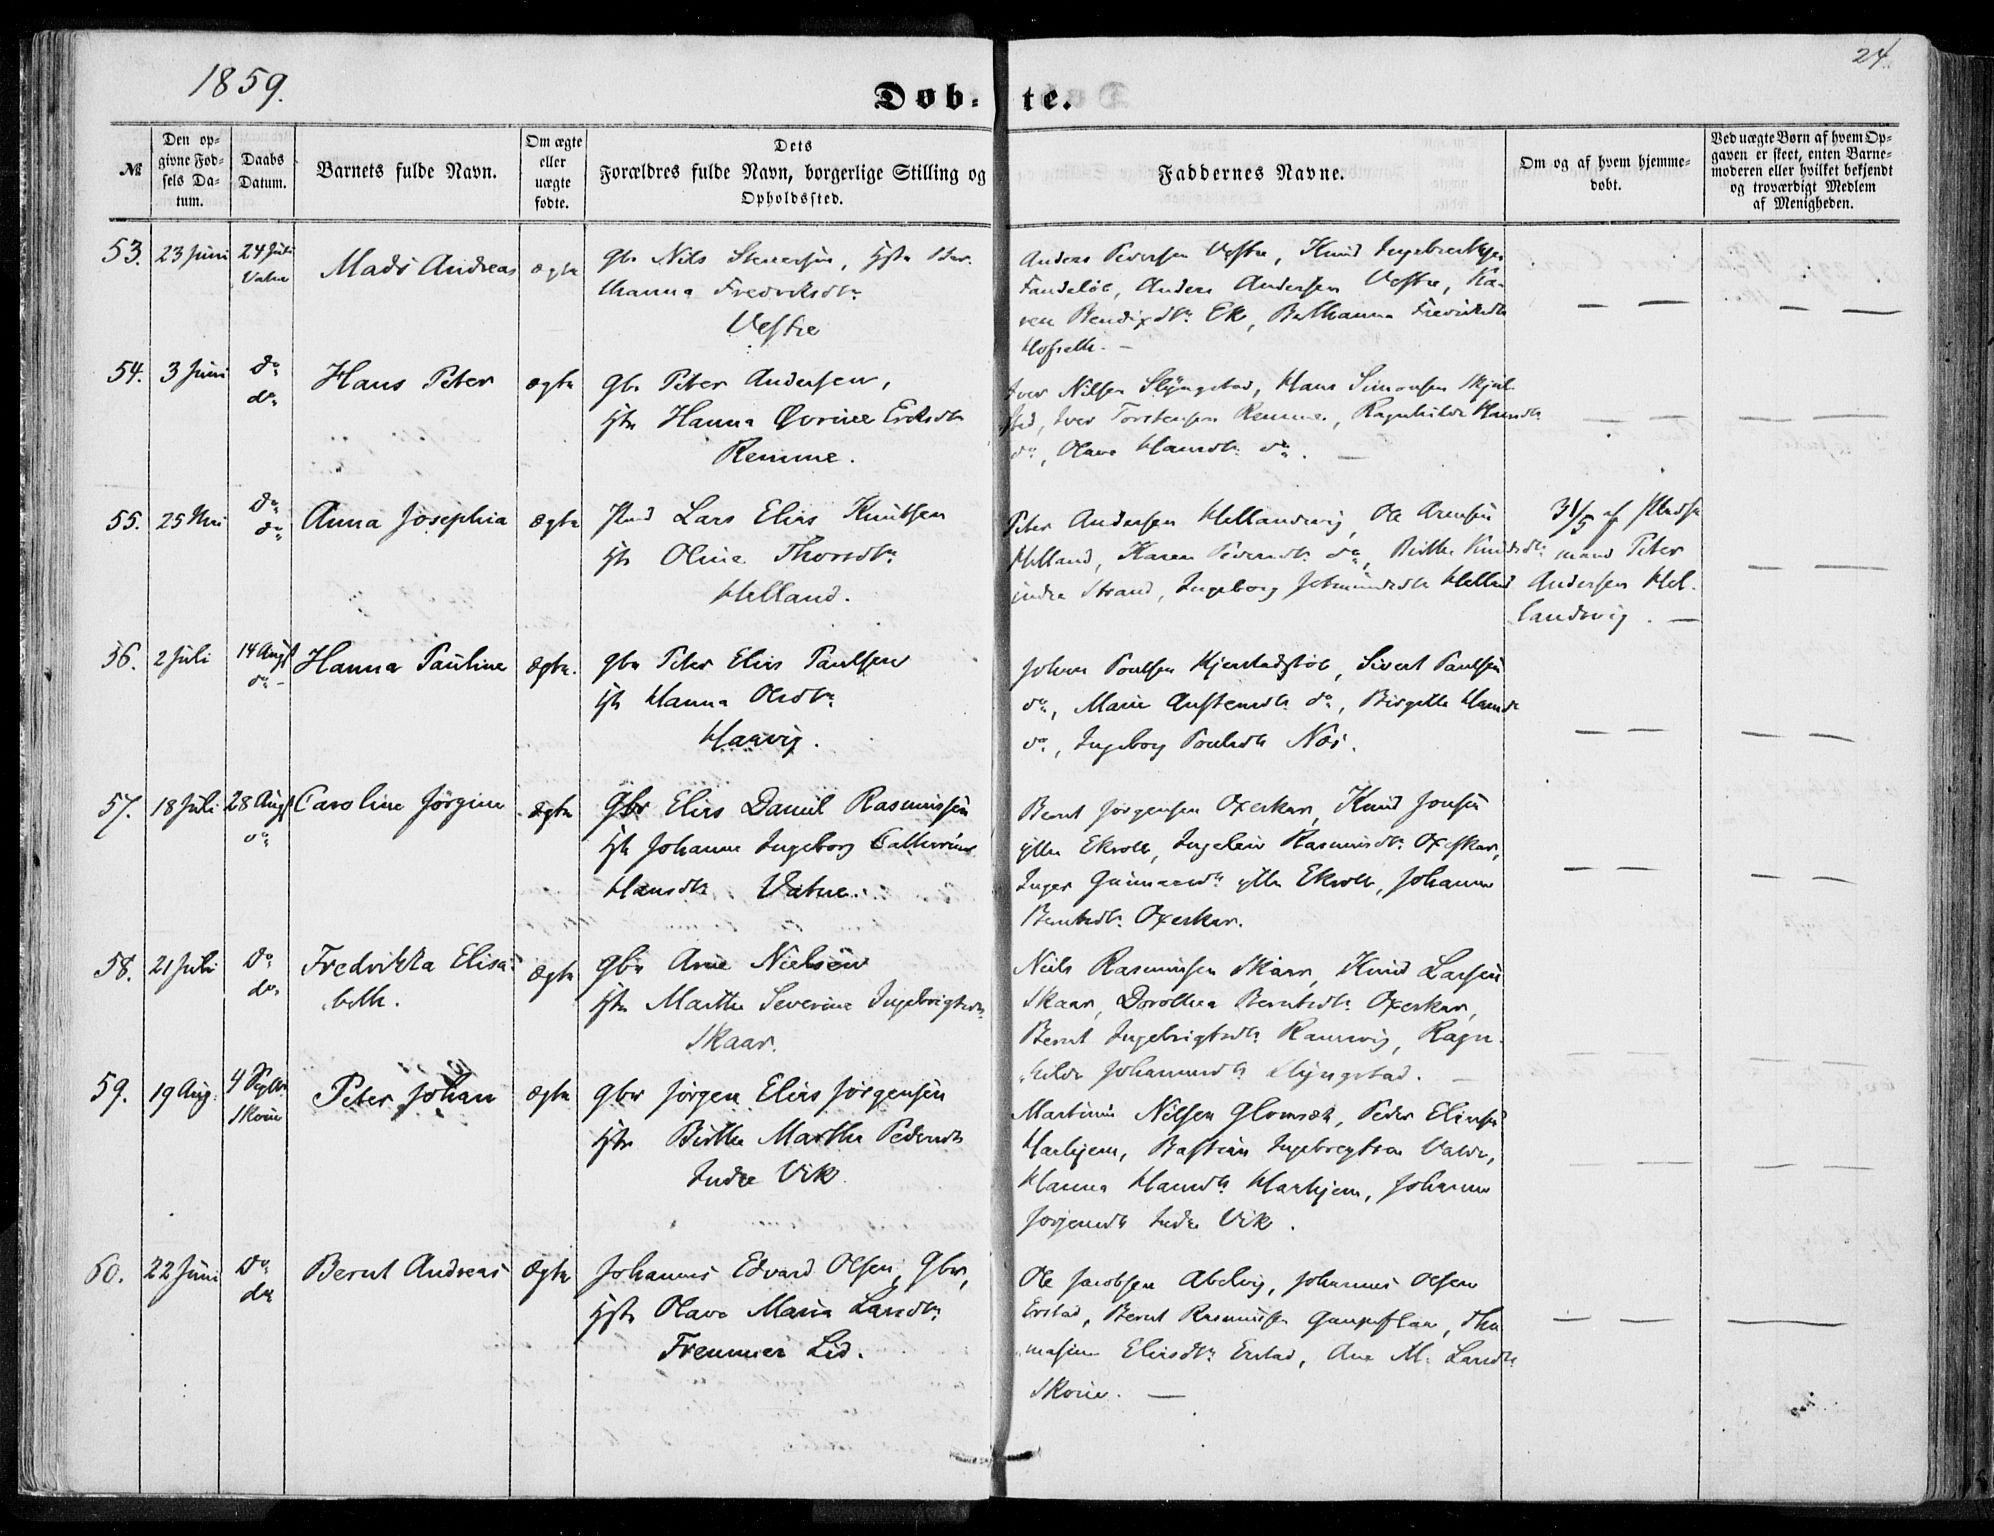 1859.
24.
Døb-te.
№
Den op-
givne Fød-
sels Da-
tum.
Daabs
Datum.
Barnets fulde Navn.
Om ægte
eller
uægte
fødte.
Dets
Forældres fulde Navn, borgerlige Stilling og
Opholdssted.
Faddernes Navne.
Om og af hvem hjemme-
døbt.
Ved uægte Børn af hvem Op-
gaven er skeet, enten Barne-
moderen eller hvilket bekjendt
og troværdigt Medlem
af Menigheden.
53. 23 Juni 24 Juli
Vatne
Mads Andreas
ægte
Gbr Nils Steenersen, Hstr Ber-
thanna Fredriksdtr
Vestre
Anders Pedersen Vestre, Knud Ingebrethsen
Anders Andersen Vestre, Ka-
ren Bendixdtr Ek, Berthanna Fredriksdtr
Hofseth. -
54. 3 Juni do
do
Hans Peter
ægte
Gbr Peter Andersen,
Hstr Hanna Eriksdtr
Remme.
Iver Nilsen Slyngstad, Hans Simonsen
Iver Torstensen Remme, Ragnhilde Hansdtr
do, Olave Hansdtr do. -
55. 25 Mai do
do
Anna Josephia
ægte
Lars Elias Knutsen
Hstr Oline Thorsdtr
Helland.
Peter Andersen Hellandsvig, Ole Arnesen
Helland, Karen Pedersdtr do, Birthe Knudsdtr
indre Strand, Ingeborg Helland
31/5 af
mand Peter
Andersen Hel-
landsvig. -
56. 2 Juli 14 Augst
do -
Hanna Pauline
ægte.
Gbr Peter Elias Paulsen
Hstr Hanna Olesdtr
Haavig.
Johan Poulsen Sivert Paulsen
do, Marie do, Birgitte Hansdtr
do, Ingeborg Poulsdtr Nos.
57. 18 Juli 28 Augst
do
Caroline Jørgine
ægte
Gbr Elias Daniel Rasmussen
Hstr Johanne Ingeborg Catharine
Hansdtr Vatne.
Bernt Jørgensen Oxeskar, Knud Jonsen
ytter Ekroll, Rasmusdtr Oxeskar,
Inger Gunnarsdtr ytter Ekroll, Johanne
Berntsdtr Oxeskar.
58. 21 Juli do
do
Fredrikka Elisa-
beth.
ægte
Gbr Arne Nielsen
Hstr Marthe Severine Ingebrigtsdtr
Skaar.
Niels Rasmussen Skaar, Knud Larsen
Skaar, Dorothea Berntsdtr Oxeskar,
Bernt Ingebrigtsdtr Ragn-
hilde Johannesdtr Slyngstad. -
59. 19 Aug. 4 Septbr
Skorie
Peter Johan
ægte
Gbr Jørgen Elias Jørgensen
Hstr Birthe Marthe Pedersdtr
Indre Vik
Martinus Nilsen Glomsæt, Peder Eliassen
Harhjem, Bastian Ingebregtsen
Hanna Hansdtr Harhjem, Johanne
Jørgensdtr Indre Vik.
60. 22 Juni do
do
Bernt Andreas
Ægte
Johannes Edvard Olsen, Gbr,
Hstr Olave Maria Larsdtr
Fremmer Lid.
Ole Jacobsen Abelvig, Johannes Olsen
Erstad, Bernt Rasmussen Tho-
masine Eliasdtr Erstad, Ane M. Larsdtr
Skorie. -